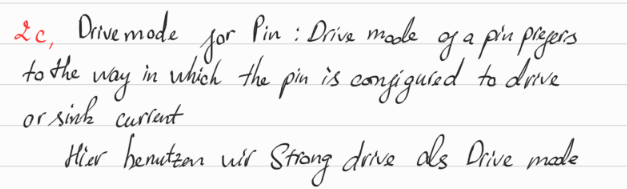 2c, Drive mode for Pin : Drive mode of a pin prefers
to the way in which the pin is configured to drive
or sink current
Hier benutzen wir Strong drive als Drive mode